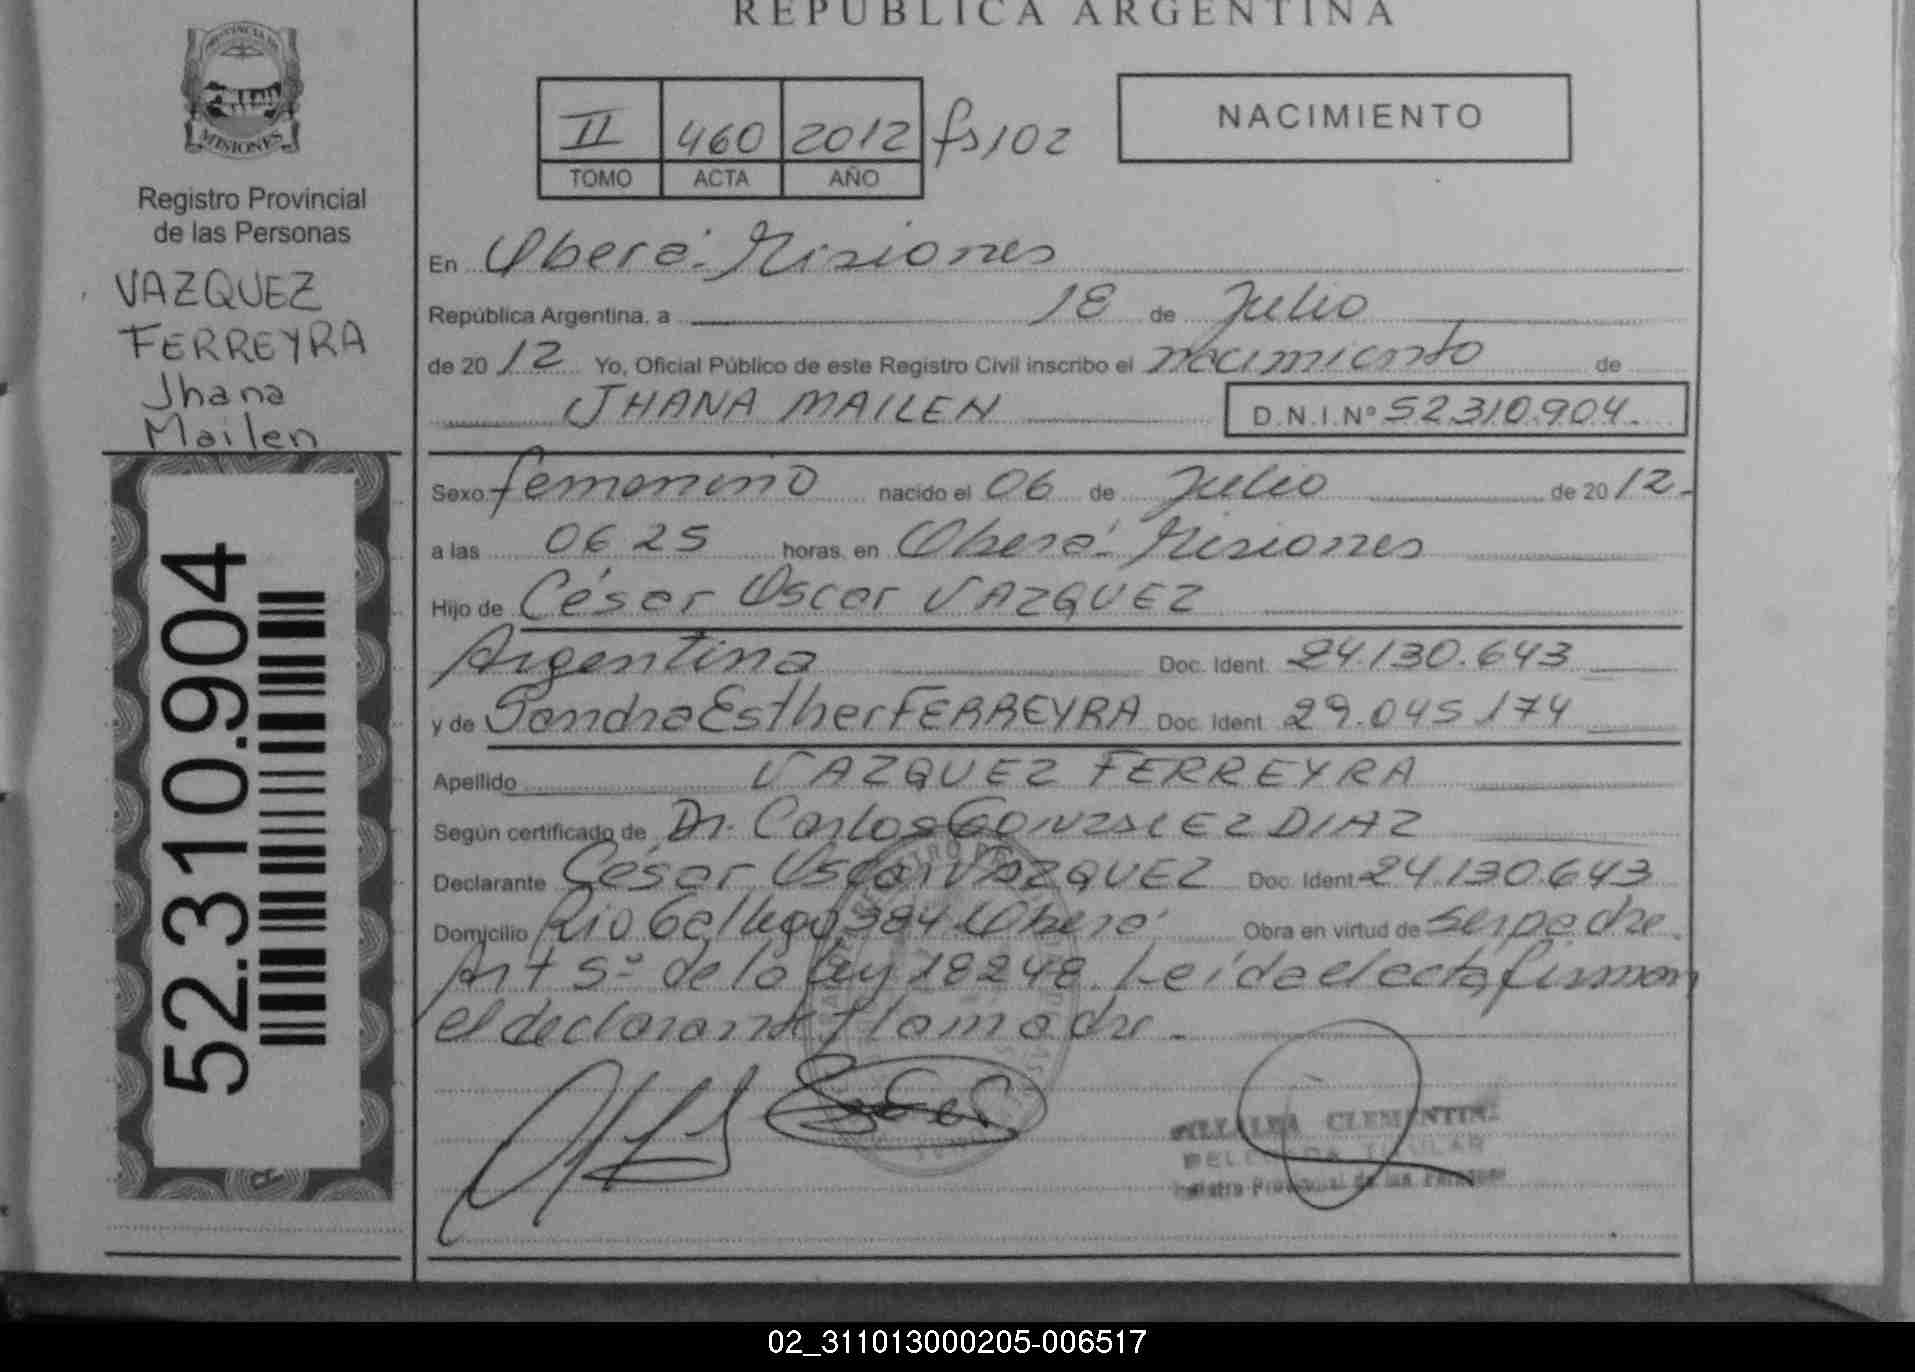 REPÚBLICA ARGENTINA
PROVINCIA DE
MISIONES
Registro Provincial
de las Personas
VAZQUEZ
FERREYRA
Jhana
Mailen
52.310.904
II 460 2012 fs 102
TOMO ACTA AÑO
NACIMIENTO
En Oberá. Misiones
República Argentina, a 18 de Julio
de 2012 Yo, Oficial Público de este Registro Civil inscribo el nacimiento de
JHANA MAILEN D.N.I.Nº 52.310.904.
Sexo femenino nacido el 06 de Julio de 2012.
a las 06 25 horas, en Oberá. Misiones
Hijo de César Oscar VAZQUEZ
Argentina Doc. Ident. 24.130.643
y de Sandra Esther FERREYRA Doc. Ident. 29.045.174
Apellido VAZQUEZ FERREYRA
Según certificado de Dr. Carlos GONZALEZ DIAZ
Declarante César Oscar VAZQUEZ Doc. Ident. 24.130.643
Domicilio Rio Gallego 384 Oberá Obra en virtud de ser padre.
Art 5º de la ley 18248. Leída el acta, firman
el declarante y la madre.
CLEMENTINA
DELEGADA TITULAR
Registro Provincial de las Personas
02_311013000205-006517